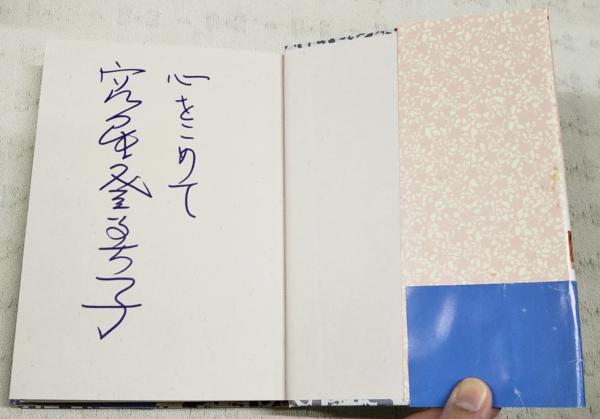 心をこめて
宮尾登美子